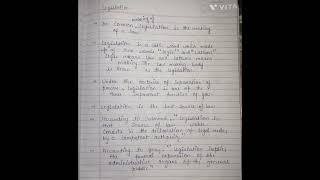 Legislation
VITA
meaning of
→ In Common, legislation is the making
of a law
→ Legislation is a word which made
up of two words "legis" and "latum"
legis means law and latum means
making. The law making body
is the legislation.
→ Under the doctrine of separation of
power, legislation is one of the
three important function of gov.
→ Legislation is the best source of law.
→ According to Salmond, "Legislation is
that source of law which
consists in the declaration of legal rules
by a competent authority."
→ According to gray, "Legislation
the formal expression of the
administrative organs of the general